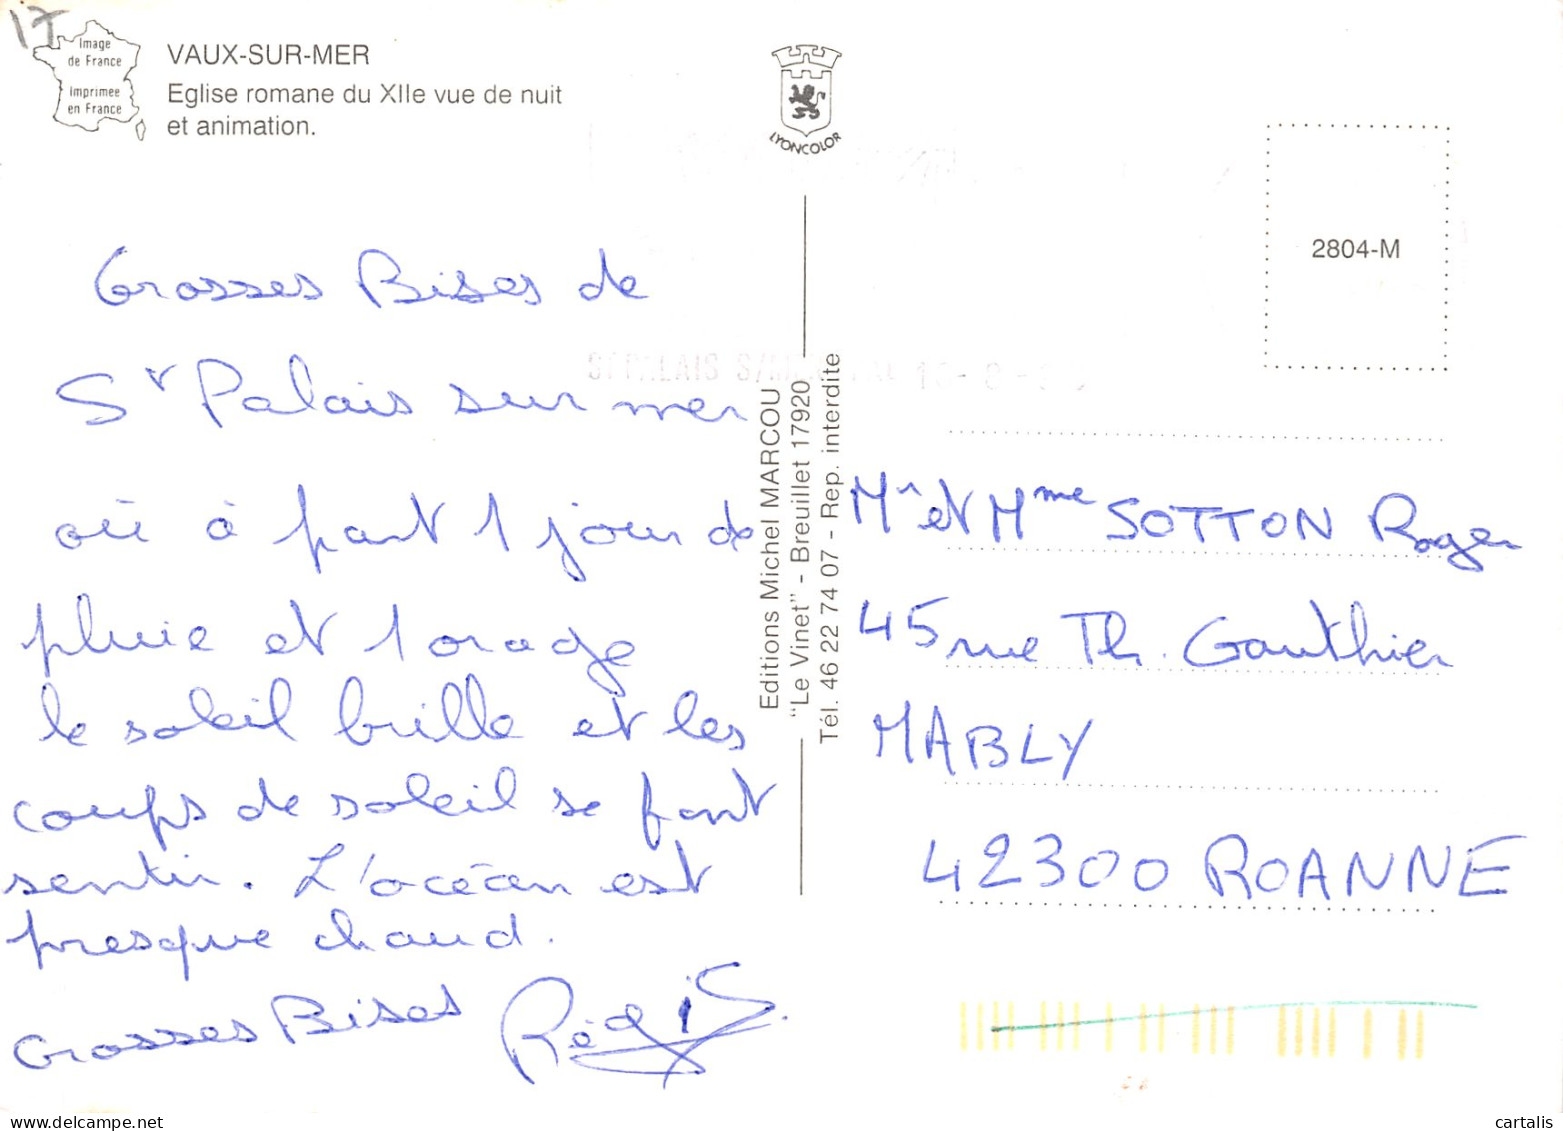 17
Image
de France
Imprimee
en France
VAUX-SUR-MER
Eglise romane du XIIe vue de nuit
et animation.
LYONCOLOR
2804-M
Grosses Bises de
St Palais sur mer
où à part 1 jour de
pluie et 1 orage
le soleil brille et les
coups de soleil se font
sentir. L'océan est
presque chaud.
Grosses Bises Régis
Editions Michel MARCOU
"Le Vinet" - Breuillet 17920
Tél. 46 22 74 07 - Rep. interdite
Mr et Mme SOTTON Roger
45 rue Th. Gauthier
MABLY
42300 ROANNE
cartalis